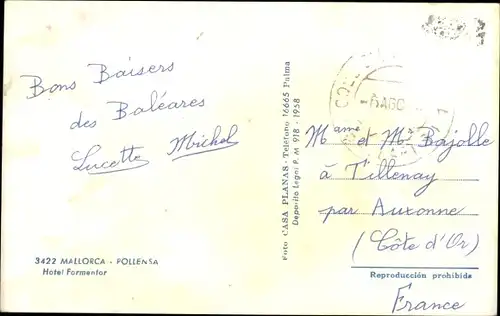 Bons Baisers
des Baléares
Lucette Michel
3422 MALLORCA - POLLENSA
Hotel Formentor
Foto CASA PLANAS - Teléfono 16665 Palma
Deposito Legal P. M 918 - 1958
Mame et Mr Bajolle
à Tillenay
par Auxonne
(Côte d'Or)
Reproducción prohibida
France